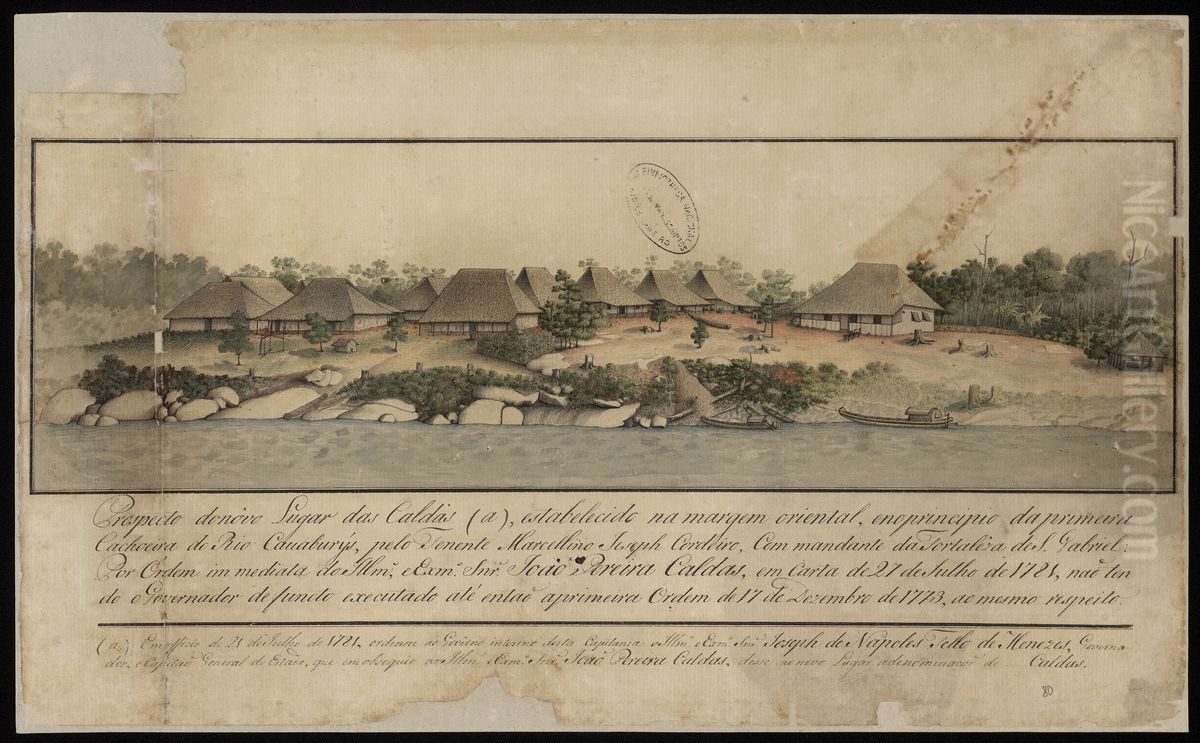 BIBLIOTHECA NACIONAL
RIO DE JANEIRO
Prospecto do nôvo Lugar das Caldas (a), estabelecido na margem oriental, e no principio da primeira
Cachoeira do Rio Cauaburys, pelo Tenente Marcellino Joseph Cordeiro, Commandante da Fortaleza de S. Gabriel:
Por Ordem immediata do Illmo. e Exmo. Snr. João Pereira Caldas, em Carta de 27 de Julho de 1781, naõ ten
do o Governador defunto executado até entaõ a primeira Ordem de 17 de Dezembro de 1773, ao mesmo respeito.
(a) Em officio de 21 de Julho de 1781, ordenou ao Governo interino desta Capitania o Illmo. e Exmo. Snr. Joseph de Napoles Tello de Menezes, Governa
dor, e Capitaõ General do Estado, que em obsequio ao Illmo. e Exmo. Snr. Joaõ Pereira Caldas, désse ao novo Lugar a denominaçaõ de Caldas.
80
NiceArtGallery.com